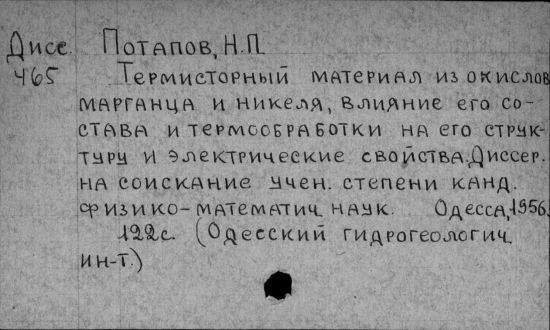 Дисс. Потапов, Н.П.
465 Термисторный материал из окислов
марганца и никеля, влияние его со-
става и термообработки на его струк-
туру и электрические свойства. Диссер.
на соискание учен. степени канд.
физико-математич. наук. Одесса, 1956.
122 с. (Одесский гидрогеологич.
ин-т.)